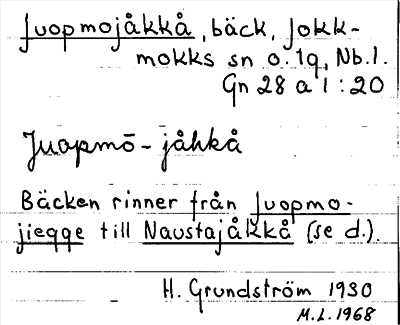 Juopmojåkkå, bäck, Jokk-
mokks sn o. lq, Nb. l.
Gn 28 a 1 : 20
Juopmō - jåhkå
Bäcken rinner från Juopmo-
jiegge till Naustajåkkå (se d.).
H. Grundström 1930
M.L. 1968